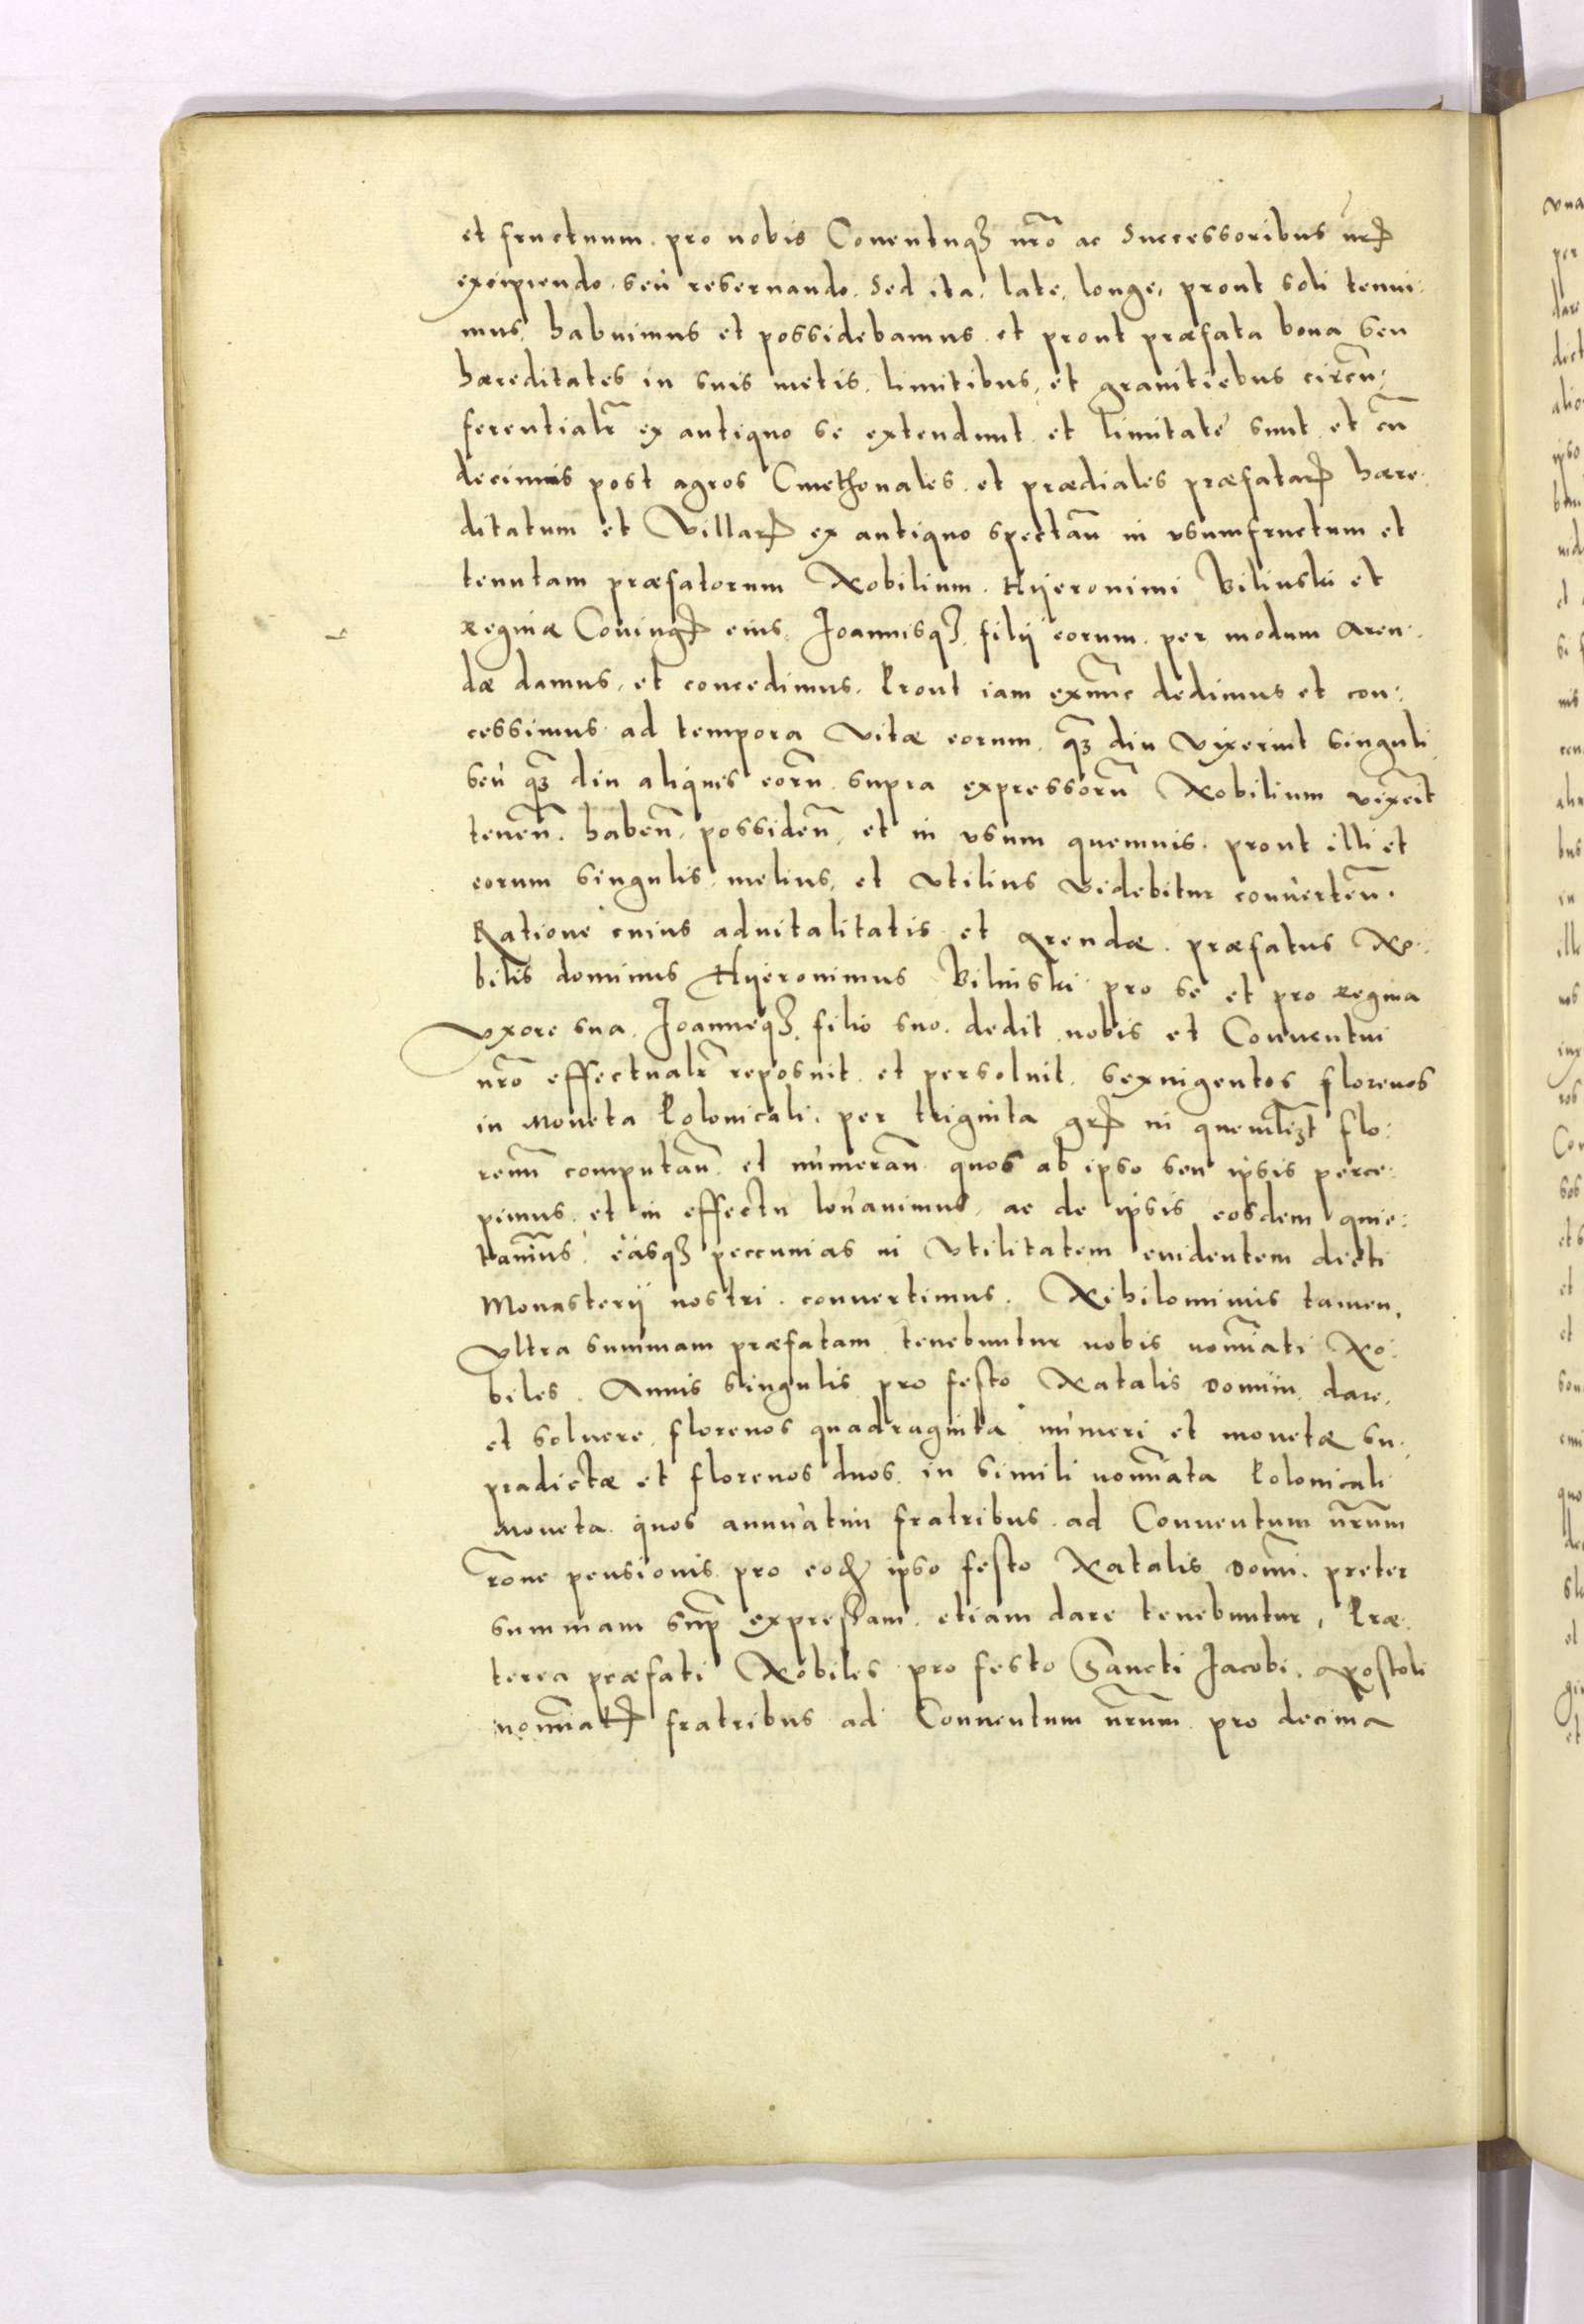 et fructuum pro nobis Conentuqȝ nr̄o ac Successoribus nrꝭ
excipiendo seu reseruando. Sed ita, late, longe, prout soli tenui:
mus, habuimus et possidebamus et prout præfata bona seu
hæreditates in suis metis, limitibus, et granitiebus circū:
ferentialr̄ ex antiquo se extendunt et limitate sunt et cū
decimis post agros Cmethonales et prædiales præfatarꝝ hære:
ditatum et Villarꝝ ex antiquo spectañ in vsumfructum et
tenutam præfatorum Nobilium Hyeronimi Bilinski et
Reginæ Coniugꝭ eius, Joannisqȝ filij eorum per modum Aren:
dæ damus, et concedimus. Prout iam exnūc dedimus et con:
cessimus ad tempora Vitæ eorum, qȝ diu Vixerint singuli
seu qȝ diu aliquis eorū supra expressorū Nobilium vixerīt
teneñ. habeñ, possideñ, et in vsum quemuis, prout illi et
eorum singulis melius, et Vtilius Videbitur conuerteñ.
Ratione cuius aduitalitatis et Arendæ præfatus No:
bilis dominus Hyeronimus Bilinski pro se et pro Regina
Vxore sua, Joanneqȝ filio suo, dedit nobis et Conuentui
nr̄o effectualr̄ reposuit et persoluit sexingentos florenos
in Moneta Polonicali, per triginta grꝭ in quemlibȝt flo:
renū computañ et numerañ quos ab ipso seu ipsis perce:
pimus et in effectu leuauimus, ac de ipsis eosdem quie:
tamus, easqȝ peccunias in Vtilitatem euidentem dicti
Monasterij nostri conuertimus. Nihilominus tamen,
Vltra summam præfatam tenebuntur nobis nomīati No:
biles Annis singulis pro festo Natalis Domini, dare,
et soluere florenos quadraginta numeri et monetæ su:
pradictæ et florenos duos in simili nomīata Polonicali
Moneta quos annuatim fratribus ad Conuentum nr̄um
rōne pensionis pro eodē ipso festo Natalis Domi. preter
summam sup̄ expressam etiam dare tenebuntur, Præ:
terea præfati Nobiles pro festo Sancti Jacobi Apostoli
nomīatꝭ fratribus ad Conuentum nr̄um pro decima